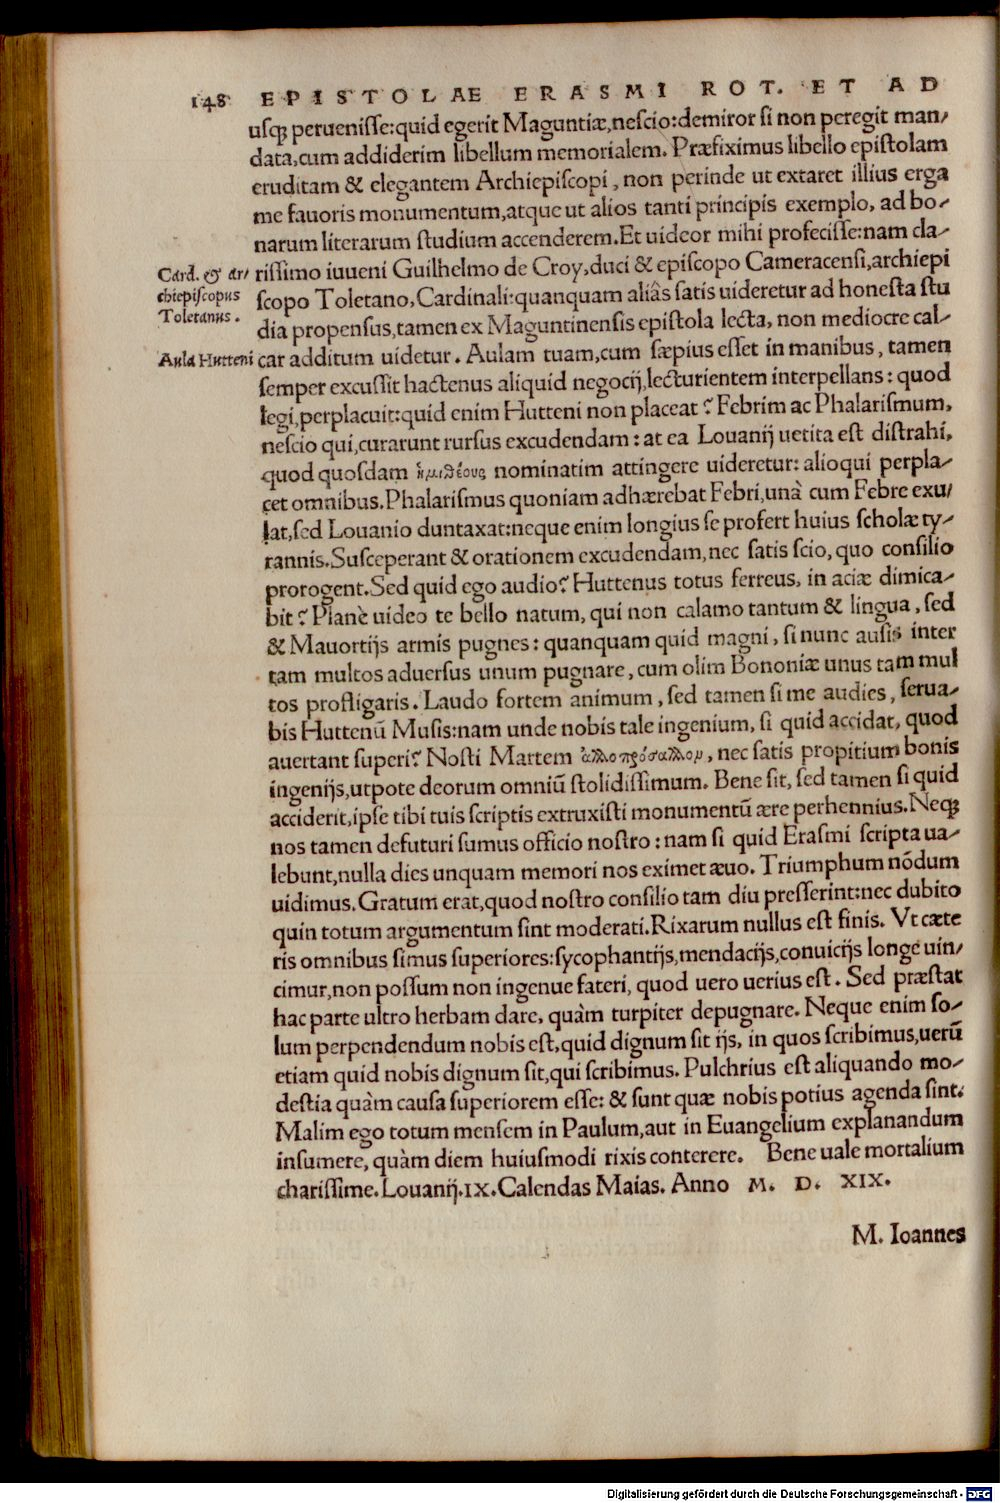 148 EPISTOLAE ERASMI ROT. ET AD
usq; peruenisse: quid egerit Maguntiæ, nescio: demiror si non peregit man/
data, cum addiderim libellum memorialem. Præfiximus libello epistolam
eruditam & elegantem Archiepiscopi, non perinde ut extaret illius erga
me fauoris monumentum, atque ut alios tanti principis exemplo, ad bo-
narum literarum studium accenderem. Et uideor mihi profecisse: nam cla-
Card. & ar/
chiepiscopus
Toletanus.
rissimo iuueni Guilhelmo de Croy, duci & episcopo Cameracensi, archiepi
scopo Toletano, Cardinali: quanquam aliâs satis uideretur ad honesta stu
dia propensus, tamen ex Maguntinensis epistola lecta, non mediocre cal-
Aula Hutteni
car additum uidetur. Aulam tuam, cum sæpius esset in manibus, tamen
semper excussit hactenus aliquid negocij, lecturientem interpellans: quod
legi, perplacuit: quid enim Hutteni non placeat? Febrim ac Phalarismum,
nescio qui, curarunt rursus excudendam: at ea Louanij uetita est distrahi,
quod quosdam ἡμιθέους nominatim attingere uideretur: alioqui perpla-
cet omnibus. Phalarismus quoniam adhærebat Febri, unà cum Febre exu/
lat, sed Louanio duntaxat: neque enim longius se profert huius scholæ ty-
rannis. Susceperant & orationem excudendam, nec satis scio, quo consilio
prorogent. Sed quid ego audio? Huttenus totus ferreus, in aciæ dimica-
bit? Planè uideo te bello natum, qui non calamo tantum & lingua, sed
& Mauortijs armis pugnes: quanquam quid magni, si nunc ausis inter
tam multos aduersus unum pugnare, cum olim Bononiæ unus tam mul
tos profligaris. Laudo fortem animum, sed tamen si me audies, serua-
bis Huttenũ Musis: nam unde nobis tale ingenium, si quid accidat, quod
auertant superi? Nosti Martem ἀλλοπρόσαλλον, nec satis propitium bonis
ingenijs, utpote deorum omniũ stolidissimum. Bene sit, sed tamen si quid
acciderit, ipse tibi tuis scriptis extruxisti monumentũ ære perhennius. Neq;
nos tamen defuturi sumus officio nostro: nam si quid Erasmi scripta ua-
lebunt, nulla dies unquam memori nos eximet æuo. Triumphum nõdum
uidimus. Gratum erat, quod nostro consilio tam diu presserint: nec dubito
quin totum argumentum sint moderati. Rixarum nullus est finis. Vt cæte
ris omnibus simus superiores: sycophantijs, mendacijs, conuicijs longe uin/
cimur, non possum non ingenue fateri, quod uero uerius est. Sed præstat
hac parte ultro herbam dare, quàm turpiter depugnare. Neque enim so-
lum perpendendum nobis est, quid dignum sit ijs, in quos scribimus, uerũ
etiam quid nobis dignum sit, qui scribimus. Pulchrius est aliquando mo-
destia quàm causa superiorem esse: & sunt quæ nobis potius agenda sint.
Malim ego totum mensem in Paulum, aut in Euangelium explanandum
insumere, quàm diem huiusmodi rixis conterere. Bene uale mortalium
charissime. Louanij. IX. Calendas Maias. Anno M. D. XIX.
M. Ioannes
Digitalisierung gefördert durch die Deutsche Forschungsgemeinschaft - DFG